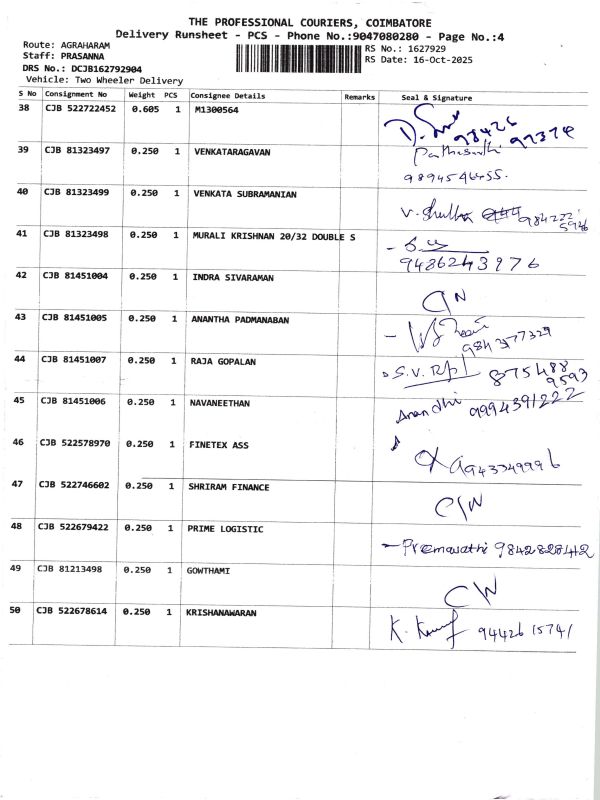 THE PROFESSIONAL COURIERS, COIMBATORE
Delivery Runsheet - PCS - Phone No.:9047080280 - Page No.:4
Route: AGRAHARAM RS No.: 1627929
Staff: PRASANNA RS Date: 16-Oct-2025
DRS No.: DCJB162792904
Vehicle: Two Wheeler Delivery
S No Consignment No Weight PCS Consignee Details Remarks Seal & Signature
38 CJB 522722452 0.605 1 M1300564 98426 97374
39 CJB 81323497 0.250 1 VENKATARAGAVAN Parthasarthi
9894546455.
40 CJB 81323499 0.250 1 VENKATA SUBRAMANIAN
41 CJB 81323498 0.250 1 MURALI KRISHNAN 20/32 DOUBLE S
9486243976
42 CJB 81451004 0.250 1 INDRA SIVARAMAN
43 CJB 81451005 0.250 1 ANANTHA PADMANABAN
9842377329
44 CJB 81451007 0.250 1 RAJA GOPALAN S.V. 875488
9593
45 CJB 81451006 0.250 1 NAVANEETHAN Anandhi 9994391222
46 CJB 522578970 0.250 1 FINETEX ASS 9943349996
47 CJB 522746602 0.250 1 SHRIRAM FINANCE C/W
48 CJB 522679422 0.250 1 PRIME LOGISTIC - Premavathi 9842828412
49 CJB 81213498 0.250 1 GOWTHAMI CW
50 CJB 522678614 0.250 1 KRISHANAWARAN K. 94426 15741